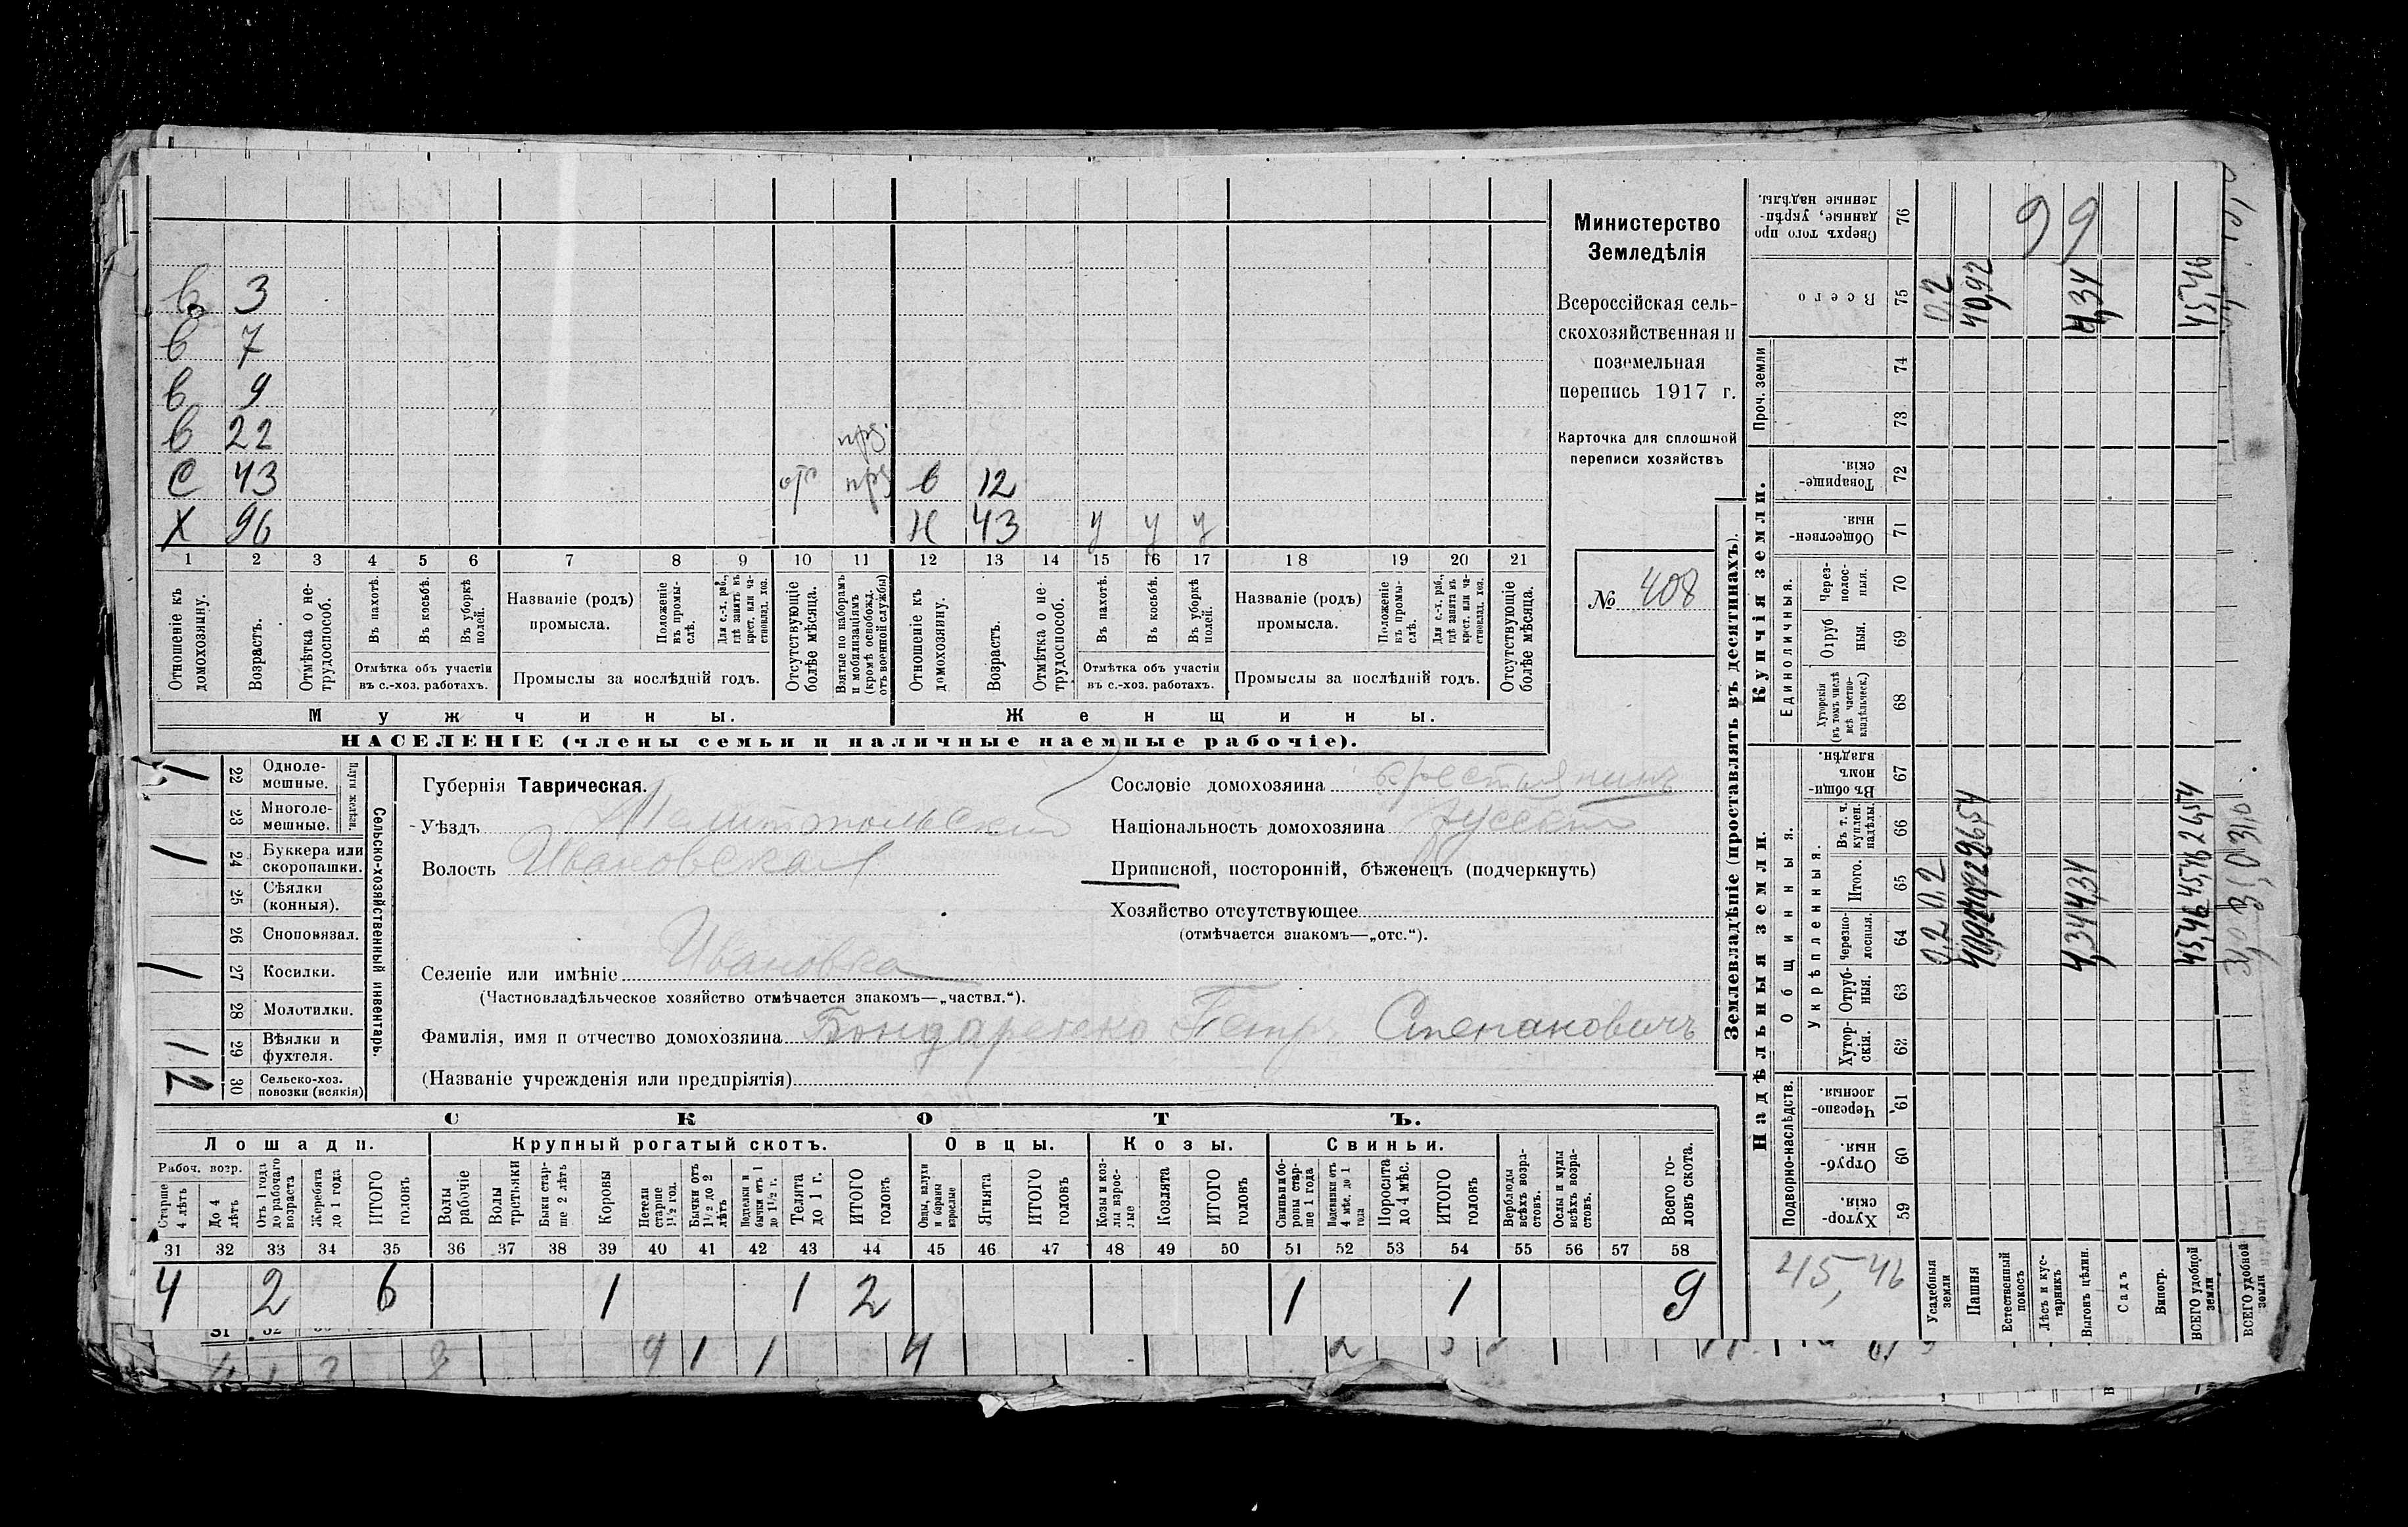 в 3
в 7
в 9
в 22 прз.
С 43 отс прз в 12
Х 96 Н 43 у у у
1 2 3 4 5 6 7 8 9 10 11 12 13 14 15 16 17 18 19 20 21
Отношеніе къ домохозяину.
Возрастъ.
Отмѣтка о нетрудоспособ.
Въ пахотѣ.
Въ косьбѣ.
Въ уборкѣ полей.
Отмѣтка объ участіи
въ с.-хоз. работахъ.
Названіе (родъ)
промысла.
Положеніе въ промыслѣ.
Для с.-х. раб., гдѣ занятъ въ крест. или частновлад. хоз.
Промыслы за послѣдній годъ.
Отсутствующіе болѣе мѣсяца.
Взятые по наборамъ и мобилизаціямъ (кромѣ освобожд. отъ военной службы)
Отношеніе къ домохозяину.
Возрастъ.
Отмѣтка о нетрудоспособ.
Въ пахотѣ.
Въ косьбѣ.
Въ уборкѣ полей.
Отмѣтка объ участіи
въ с.-хоз. работахъ.
Названіе (родъ)
промысла.
Положеніе въ промыслѣ.
Для с.-х. раб., гдѣ занята въ крест. или частновлад. хоз.
Промыслы за послѣдній годъ.
Отсутствующіе болѣе мѣсяца.
Мужчины. Женщины.
НАСЕЛЕНІЕ (члены семьи и наличные наемные рабочіе).
Министерство
Земледѣлія
Всероссійская сель-
скохозяйственная и
поземельная
перепись 1917 г.
Карточка для сплошной
переписи хозяйствъ
№ 408
1 22 Однолемешные.
23 Многолемешные.
Плуги желѣзн.
1 24 Буккера или скоропашки.
25 Сѣялки (конныя).
26 Сноповязал.
1 27 Косилки.
28 Молотилки.
1 29 Вѣялки и фухтеля.
2 30 Сельско-хоз. повозки (всякія)
Сельско-хозяйственный инвентарь.
Губернія Таврическая.
Уѣздъ Мелитопольскій
Волость Ивановская
Селеніе или имѣніе Ивановка
(Частновладѣльческое хозяйство отмѣчается знакомъ—„частвл.“).
Фамилія, имя и отчество домохозяина Бондаренко Петр Степановичъ
(Названіе учрежденія или предпріятія)
Сословіе домохозяина крестьянинъ
Національность домохозяина русскій
Приписной, посторонній, бѣженецъ (подчеркнуть)
Хозяйство отсутствующее
(отмѣчается знакомъ—„отс.“).
СКОТЪ.
Лошади. Крупный рогатый скотъ. Овцы. Козы. Свиньи.
Рабоч. возр.
Старше 4 лѣтъ
До 4 лѣтъ
Отъ 1 года до рабочаго возраста
Жеребята до 1 года
ИТОГО головъ
Волы рабочіе
Волы третьяки
Быки старше 2 лѣтъ
Коровы
Нетели старше 1½ год.
Бычки отъ 1½ до 2 лѣтъ
Подтелки и бычки отъ 1 до 1½ г.
Телята до 1 г.
ИТОГО головъ
Овцы, валухи и бараны взрослые
Ягнята
ИТОГО головъ
Козы и козлы взрослые
Козлята
ИТОГО головъ
Свиньи и боровы старше 1 года
Подсвинки отъ 4 мѣс. до 1 года
Поросята до 4 мѣс.
ИТОГО головъ
Верблюды всѣхъ возрастовъ.
Ослы и мулы всѣхъ возрастовъ.
Всего головъ скота.
31 32 33 34 35 36 37 38 39 40 41 42 43 44 45 46 47 48 49 50 51 52 53 54 55 56 57 58
4 2 6 1 1 2 1 1 9
9 1 1 4
Землевладѣніе (проставлять въ десятинахъ).
Надѣльныя земли. Купчія земли. Проч. земли
Подворно-наслѣдств. Общинныя. Укрѣпленныя. Единоличныя.
Хуторскія. 59
Отрубныя. 60
Черезполосныя. 61
Хуторскія. 62
Отрубныя. 63
Черезполосныя. 64
Итого. 65
Въ т. ч. куплен. надѣлы. 66
Въ общинномъ владѣн. 67
Хуторскія (въ томъ числѣ всѣ частновладѣльческ.) 68
Отрубныя. 69
Черезполосныя. 70
Общественныя. 71
Товарищескія. 72
73
74
Всего 75
Сверхъ того проданные, укрѣпленные надѣлы. 76
45,46
Усадебныя земли 0,2 0,2 0,2
Пашня 40,92 40,92 26,54 40,92
Естественный покосъ
Лѣсъ и кустарникъ
Выгонъ цѣлин. 4,34 4,34 4,34
Садъ
Виногр.
ВСЕГО удобной земли 45,46 45,46 26,54 45,46
99
ВСЕГО удобной земли